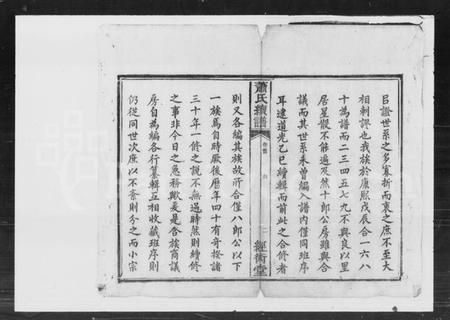 吕證世系之多寡折而衷之庶不至大
相刺謬也我族於康熙戊辰合一六八
十為譜而二三四五七九不與良以里
居星散不能遍及然十郎公房雖與合
議而其世系未曾編入譜內僅同班序
耳逮道光乙巳續輯而前此之合修者
蕭氏續譜
卷首
二
經術堂
則又各編其族故所合僅八郎公以下
一族焉自時厥後歷年四十有奇揆諸
三十年一修之說不無過時然則續修
之事非今日之急務歟爰是舍族商議
房自為編各行纂輯互相收藏班序則
仍從同世次庶以不紊則分之而小宗